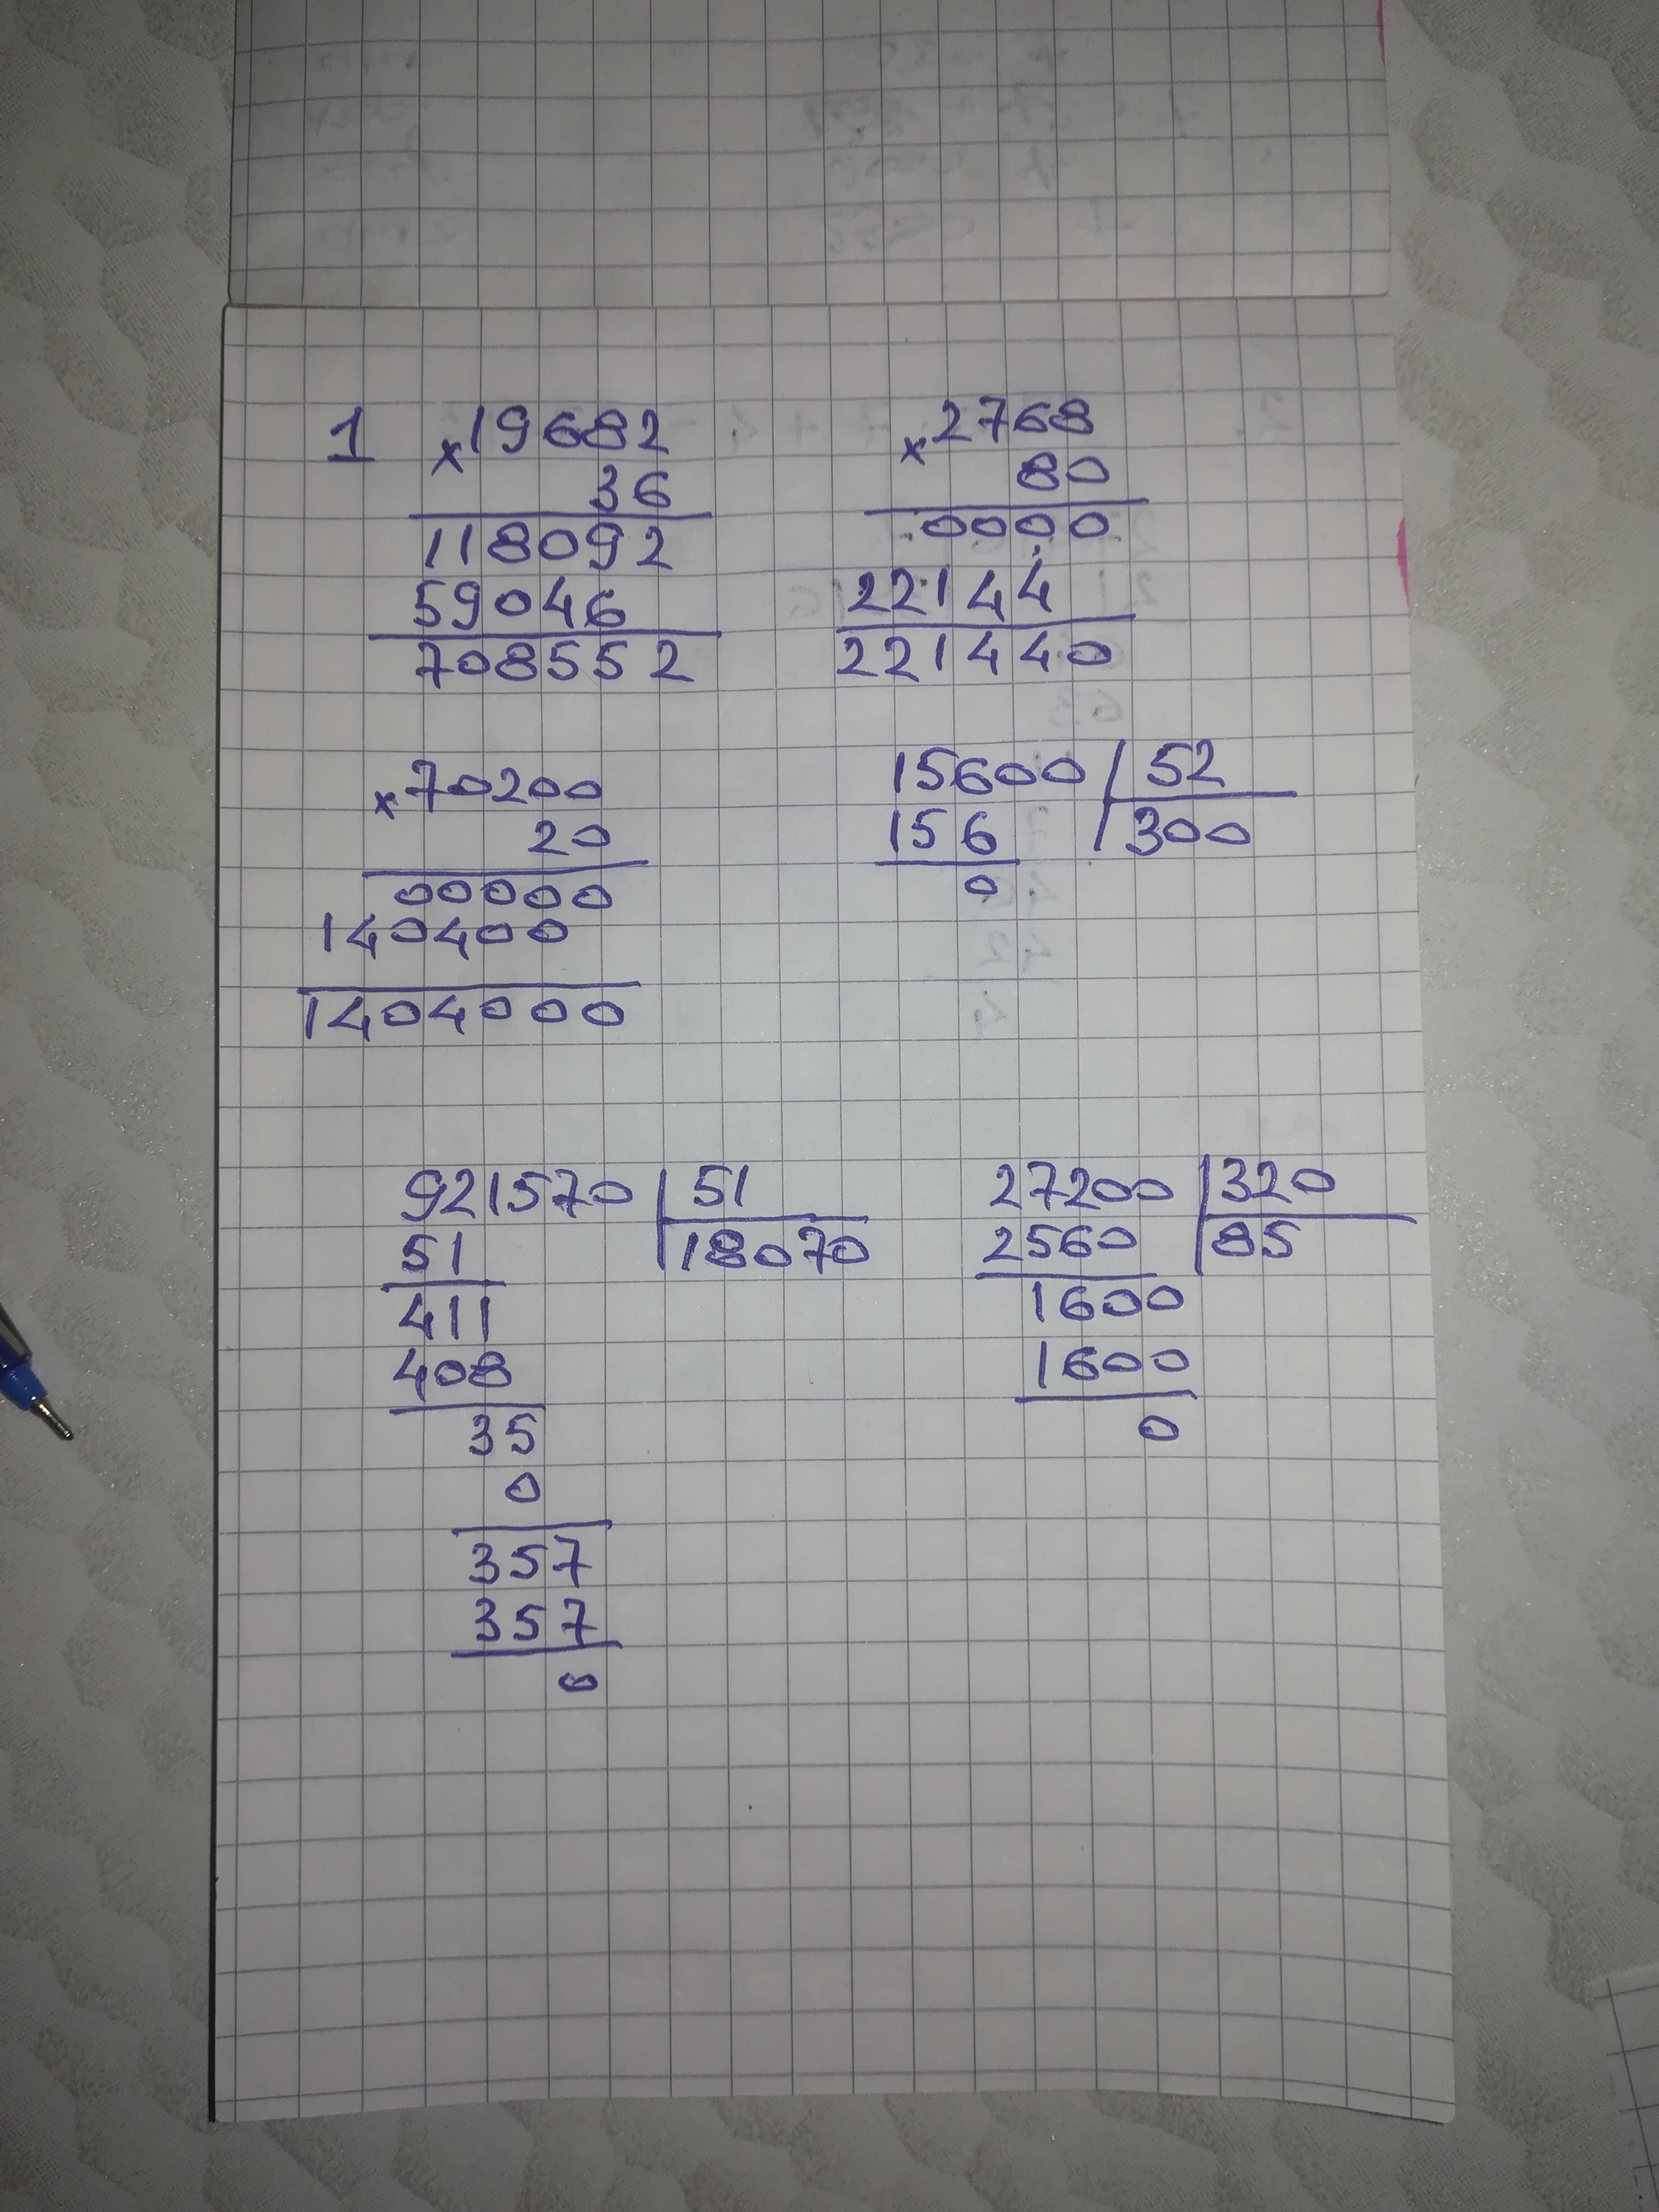 1
× 19682
36
118092
59046
708552
× 2768
80
0000
22144
221440
× 70200
20
00000
140400
1404000
15600 | 52
156 | 300
0
921570 | 51
51 | 18070
411
408
35
0
357
357
0
27200 | 320
2560 | 85
1600
1600
0